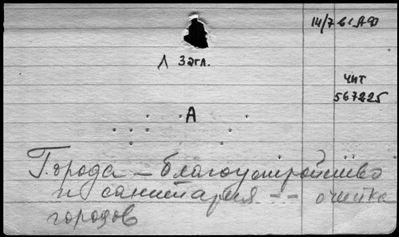 14/7 61 АФ
1 Загл.
ЧИТ
567225
А
Города – благоустройство
и санитария – – очистка
городов